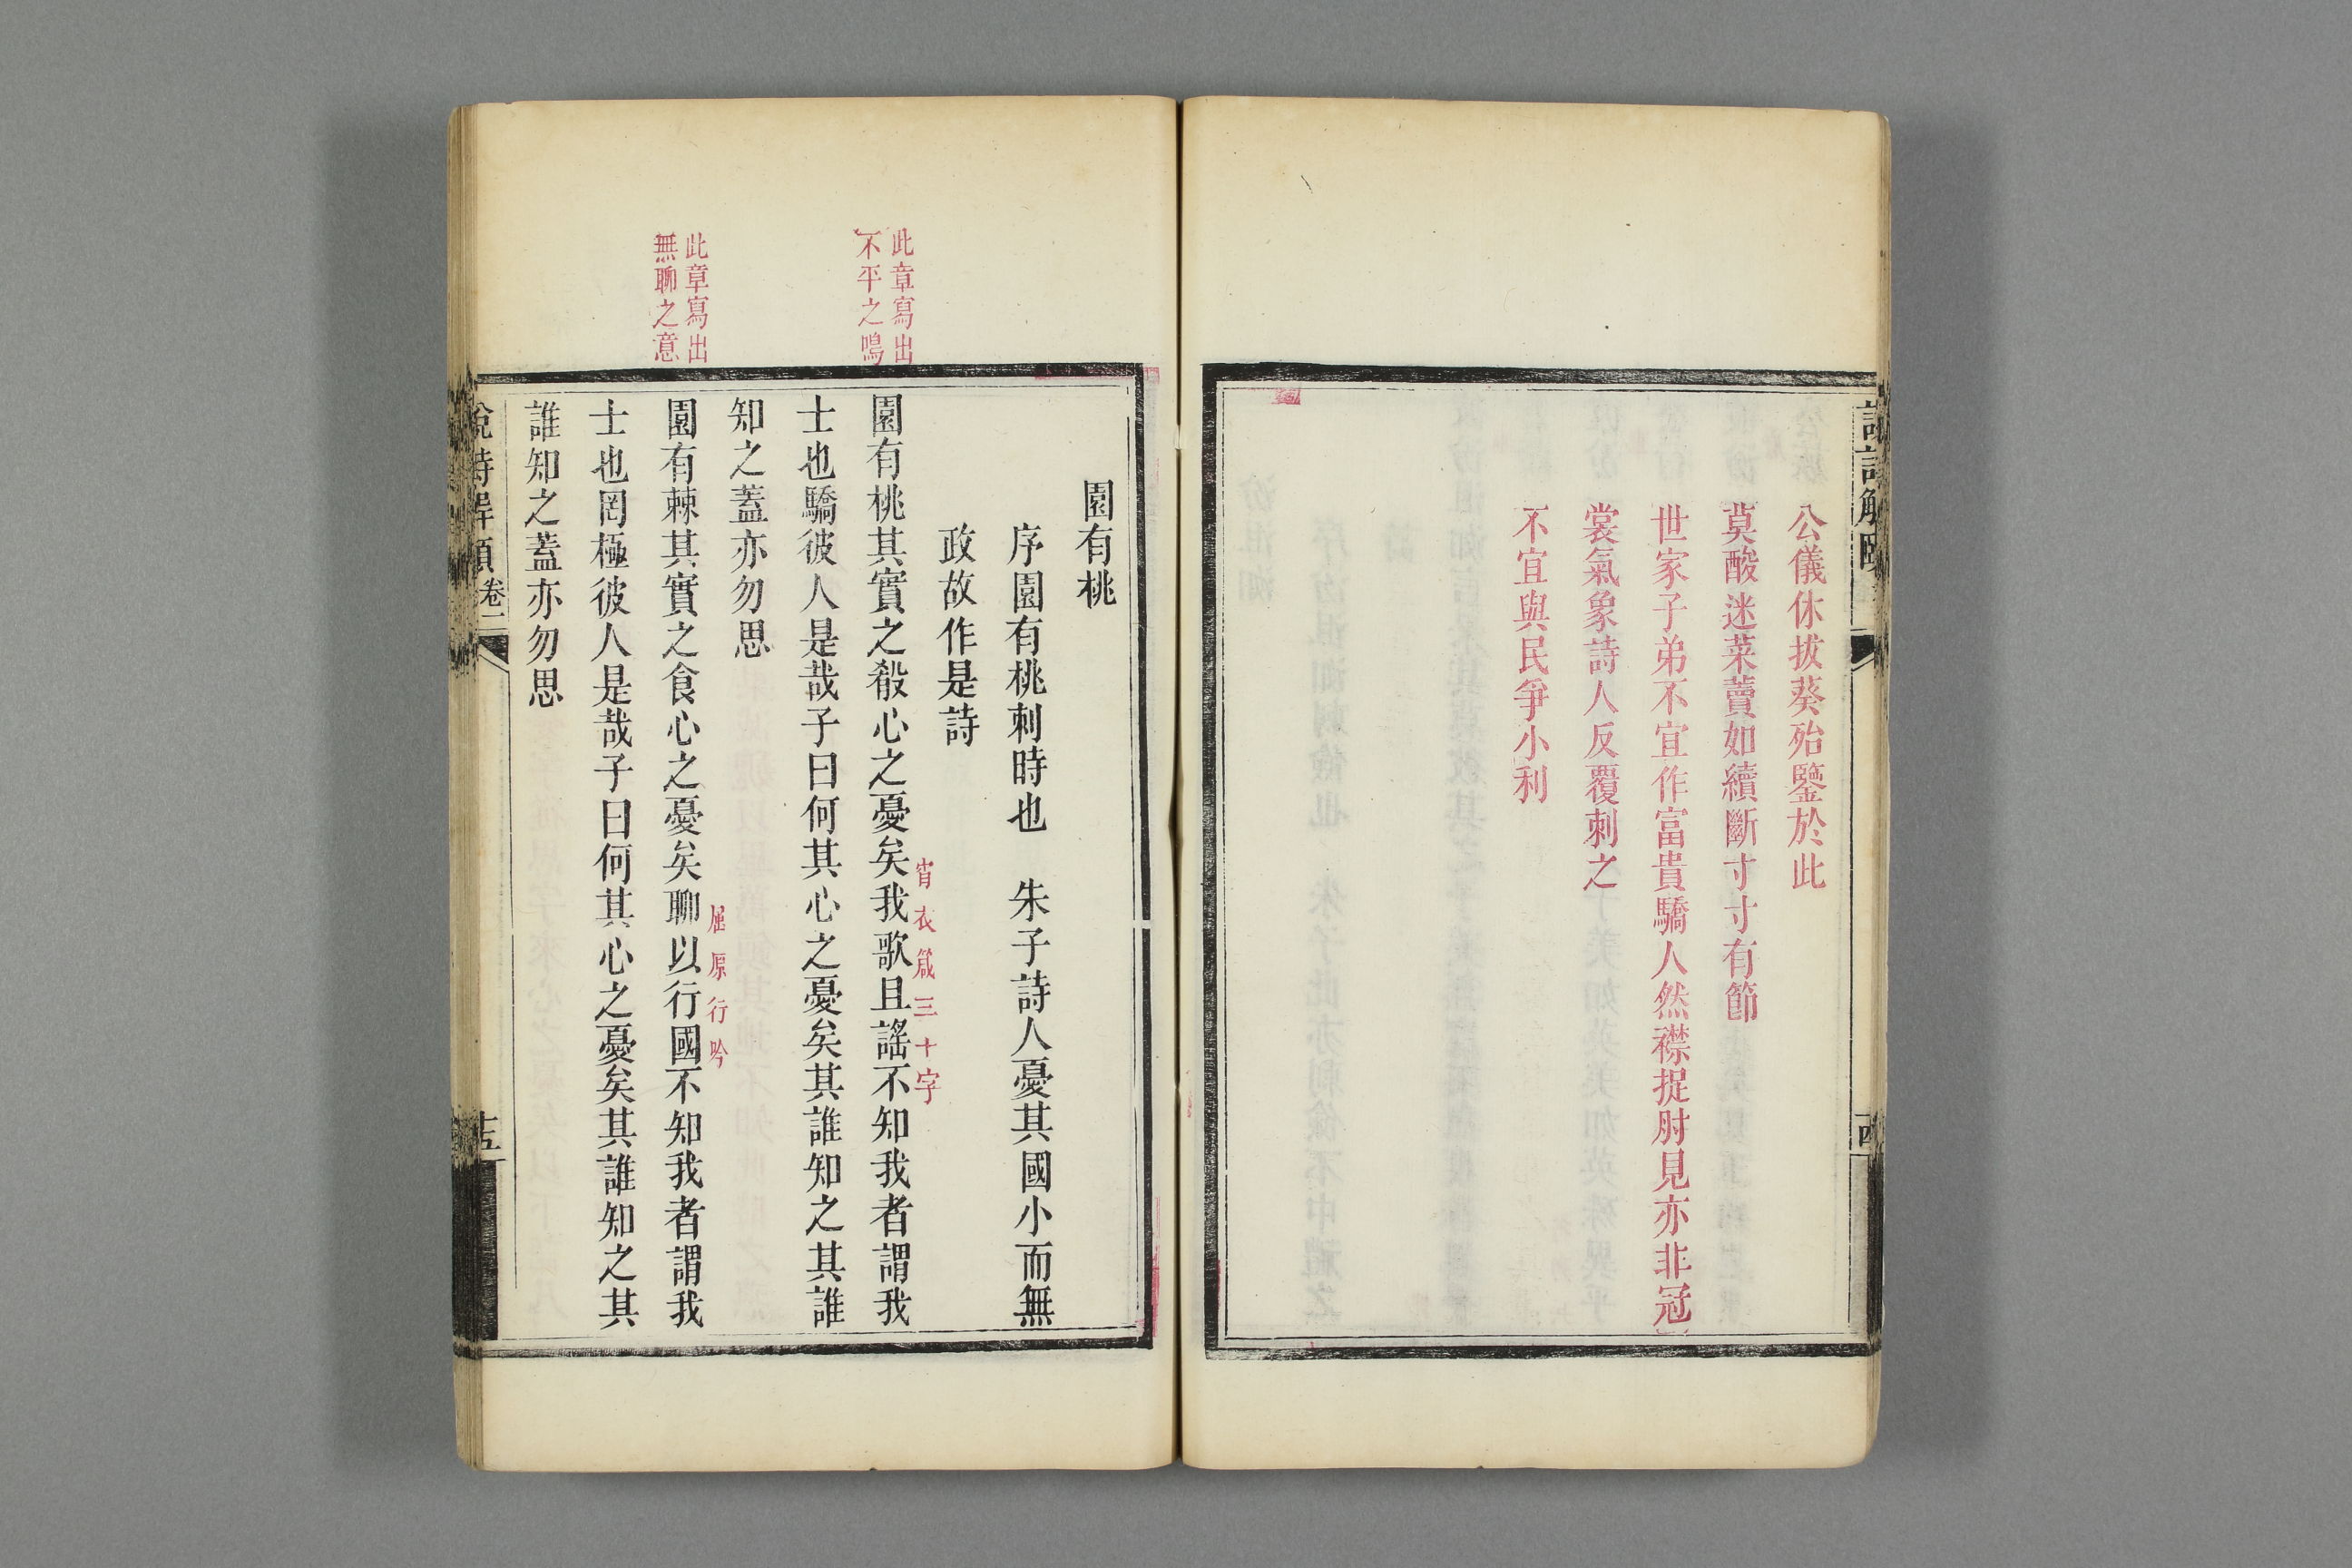 公儀休拔葵殆鑒於此
莫酸迷菜藚如續斷寸寸有節
世家子弟不宜作富貴驕人然襟捉肘見亦非冠
裳氣象詩人反覆刺之
不宜與民爭小利
園有桃
序園有桃刺時也　朱子詩人憂其國小而無
政故作是詩
此章寫出
不平之鳴
園有桃其實之殽心之憂矣我歌且謠不知我者謂我
宵衣箴三十字
士也驕彼人是哉子曰何其心之憂矣其誰知之其誰
知之蓋亦勿思
此章寫出
無聊之意
園有棘其實之食心之憂矣聊以行國不知我者謂我
屈原行吟
士也罔極彼人是哉子曰何其心之憂矣其誰知之其
誰知之蓋亦勿思
說詩解頤 卷二
十五